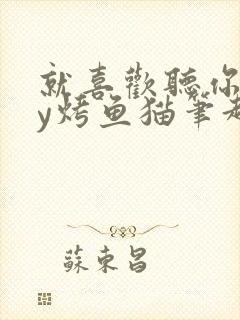 就喜歡聽你
y烤鱼猫筆趣
蘇東昌